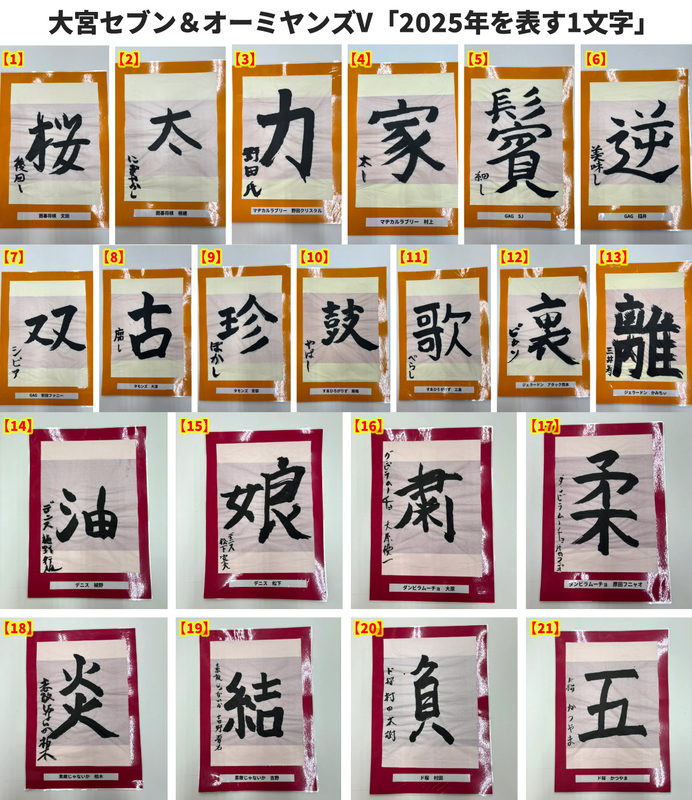 大宮セブン＆オーミヤンズV「2025年を表す1文字」
【1】
桜
後回し
囲碁将棋　文田
【2】
太
囲碁将棋　根建
【3】
力
野田氏
マヂカルラブリー　野田クリスタル
【4】
家
本し
マヂカルラブリー　村上
【5】
鬢
細し
GAG　SJ
【6】
逆
美味し
GAG　福井
【7】
双
シビア
GAG　宮戸ファニー
【8】
古
腐し
タモンズ　大波
【9】
珍
ぼかし
タモンズ　安部
【10】
鼓
やばし
すゑひろがりず　南條
【11】
歌
べらし
すゑひろがりず　三島
【12】
裏
ビヨン
ジェラードン　アタック西本
【13】
離
三井寿
ジェラードン　かみちぃ
【14】
油
デニス 植野 行雄
デニス　植野
【15】
娘
デニス
松下宣夫
デニス　松下
【16】
粛
ダンビラムーチョ 大原優一
ダンビラムーチョ　大原
【17】
柔
ダンビラムーチョ　原田フニャオ
【18】
炎
素敵じゃないか 柏木
素敵じゃないか　柏木
【19】
結
素敵じゃないか 吉野晋右
素敵じゃないか　吉野
【20】
負
ド桜 村田大樹
ド桜　村田
【21】
五
ド桜 かつやま
ド桜　かつやま